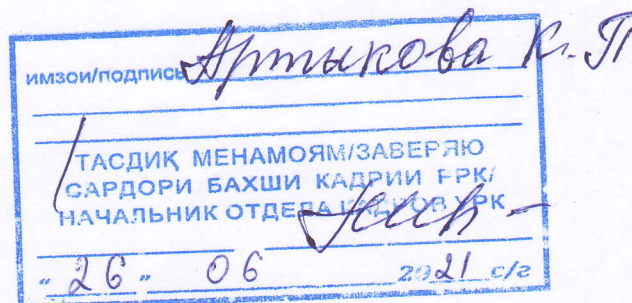 имзои/подпись Артыкова К. П
ТАСДИҚ МЕНАМОЯМ/ЗАВЕРЯЮ
САРДОРИ БАХШИ КАДРИИ РРК/
НАЧАЛЬНИК ОТДЕЛА КАДРОВ УРК
" 26 " 06 2021 с/г